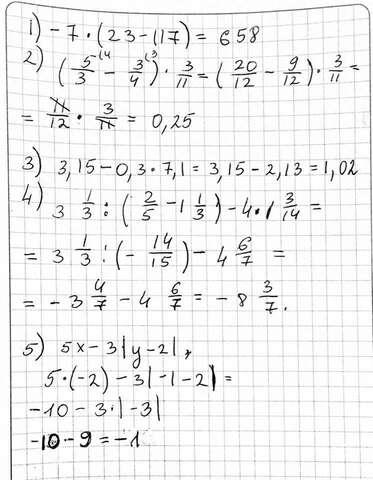 1) -7·(23-117) = 658
2) (5/3 (4 - 3/4 (3)·3/11 = (20/12 - 9/12)·3/11 =
= 11/12 · 3/11 = 0,25
3) 3,15-0,3·7,1=3,15-2,13=1,02
4) 3 1/3 : (2/5 -1 1/3)-4·1 3/14 =
= 3 1/3 : (- 14/15) - 4 6/7 =
= -3 4/7 - 4 6/7 = -8 3/7.
5) 5x-3|y-2|,
5·(-2)-3|-1-2| =
-10-3·|-3|
-10-9=-1